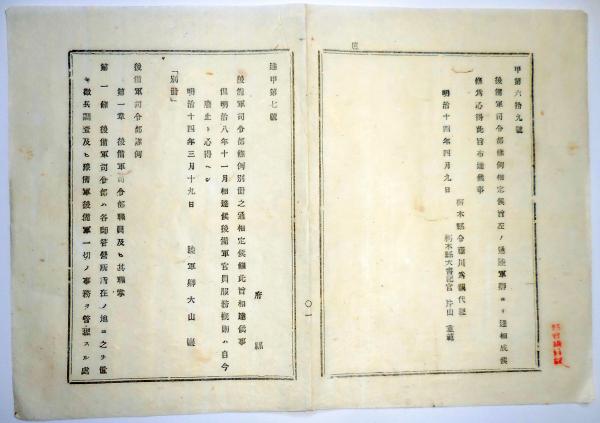 甲第六拾九號
後備軍司令部條例相定候旨左ノ通陸軍卿ヨリ達相成候
條為心得此旨布達候事
栃木縣令藤川為親代理
明治十四年四月九日 栃木縣大書記官 片山重範
達甲第七號
府縣
後備軍司令部條例別冊之通相定候條此旨相達候事
但明治八年十一月相達候後備軍官員服務概則ハ自今
廢止ト心得ヘシ
明治十四年三月十九日 陸軍卿大山巖
「別冊」
後備軍司令部條例
第一章 後備軍司令部職員及ヒ其職掌
第一條 後備軍司令部ハ各師管營所所在ノ地ニ之ヲ置
キ徵兵調査及ヒ豫備軍後備軍一切ノ事務ヲ管理スル處
〇一